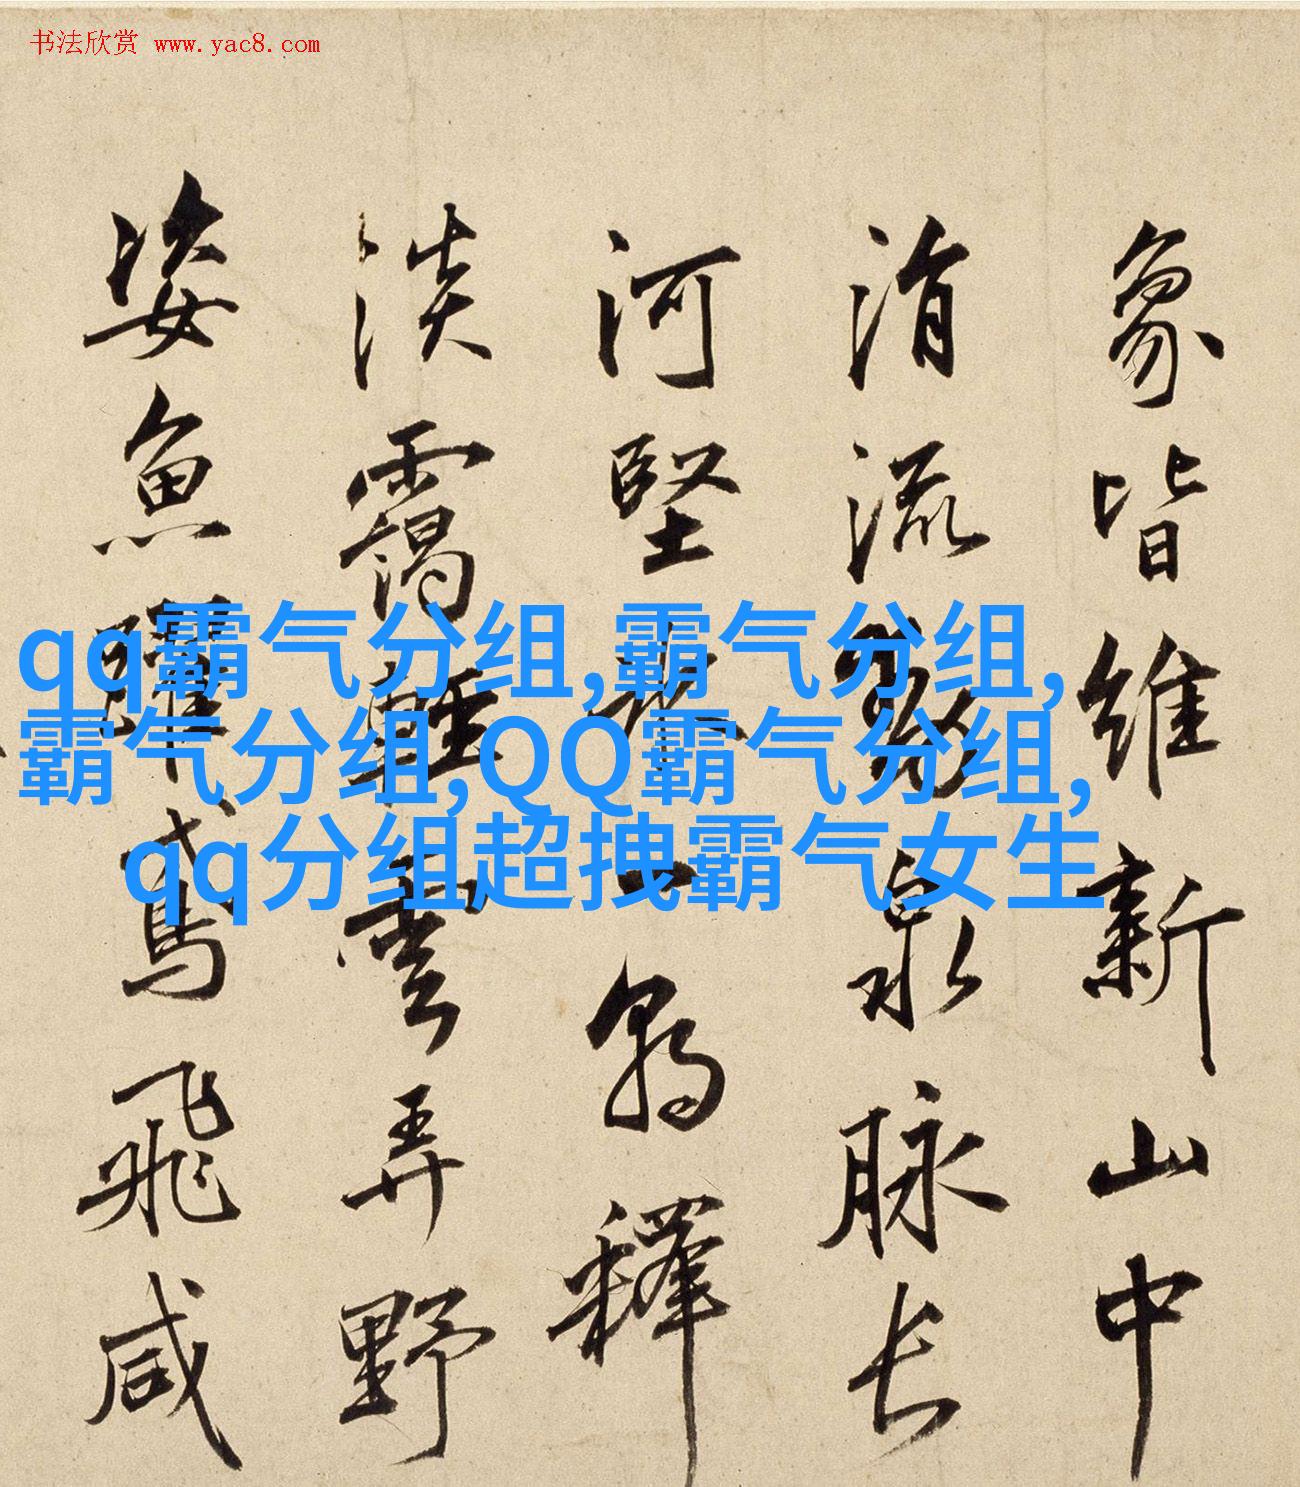 书法欣赏 www.yac8.com
象皆维新山中
涓流発泉脉长
河坚冰一朝释
淡靄軽雲弄野
姿魚躍鳶飛咸
qq霸气分组,霸气分组,
霸气分组,QQ霸气分组,
qq分组超拽霸气女生